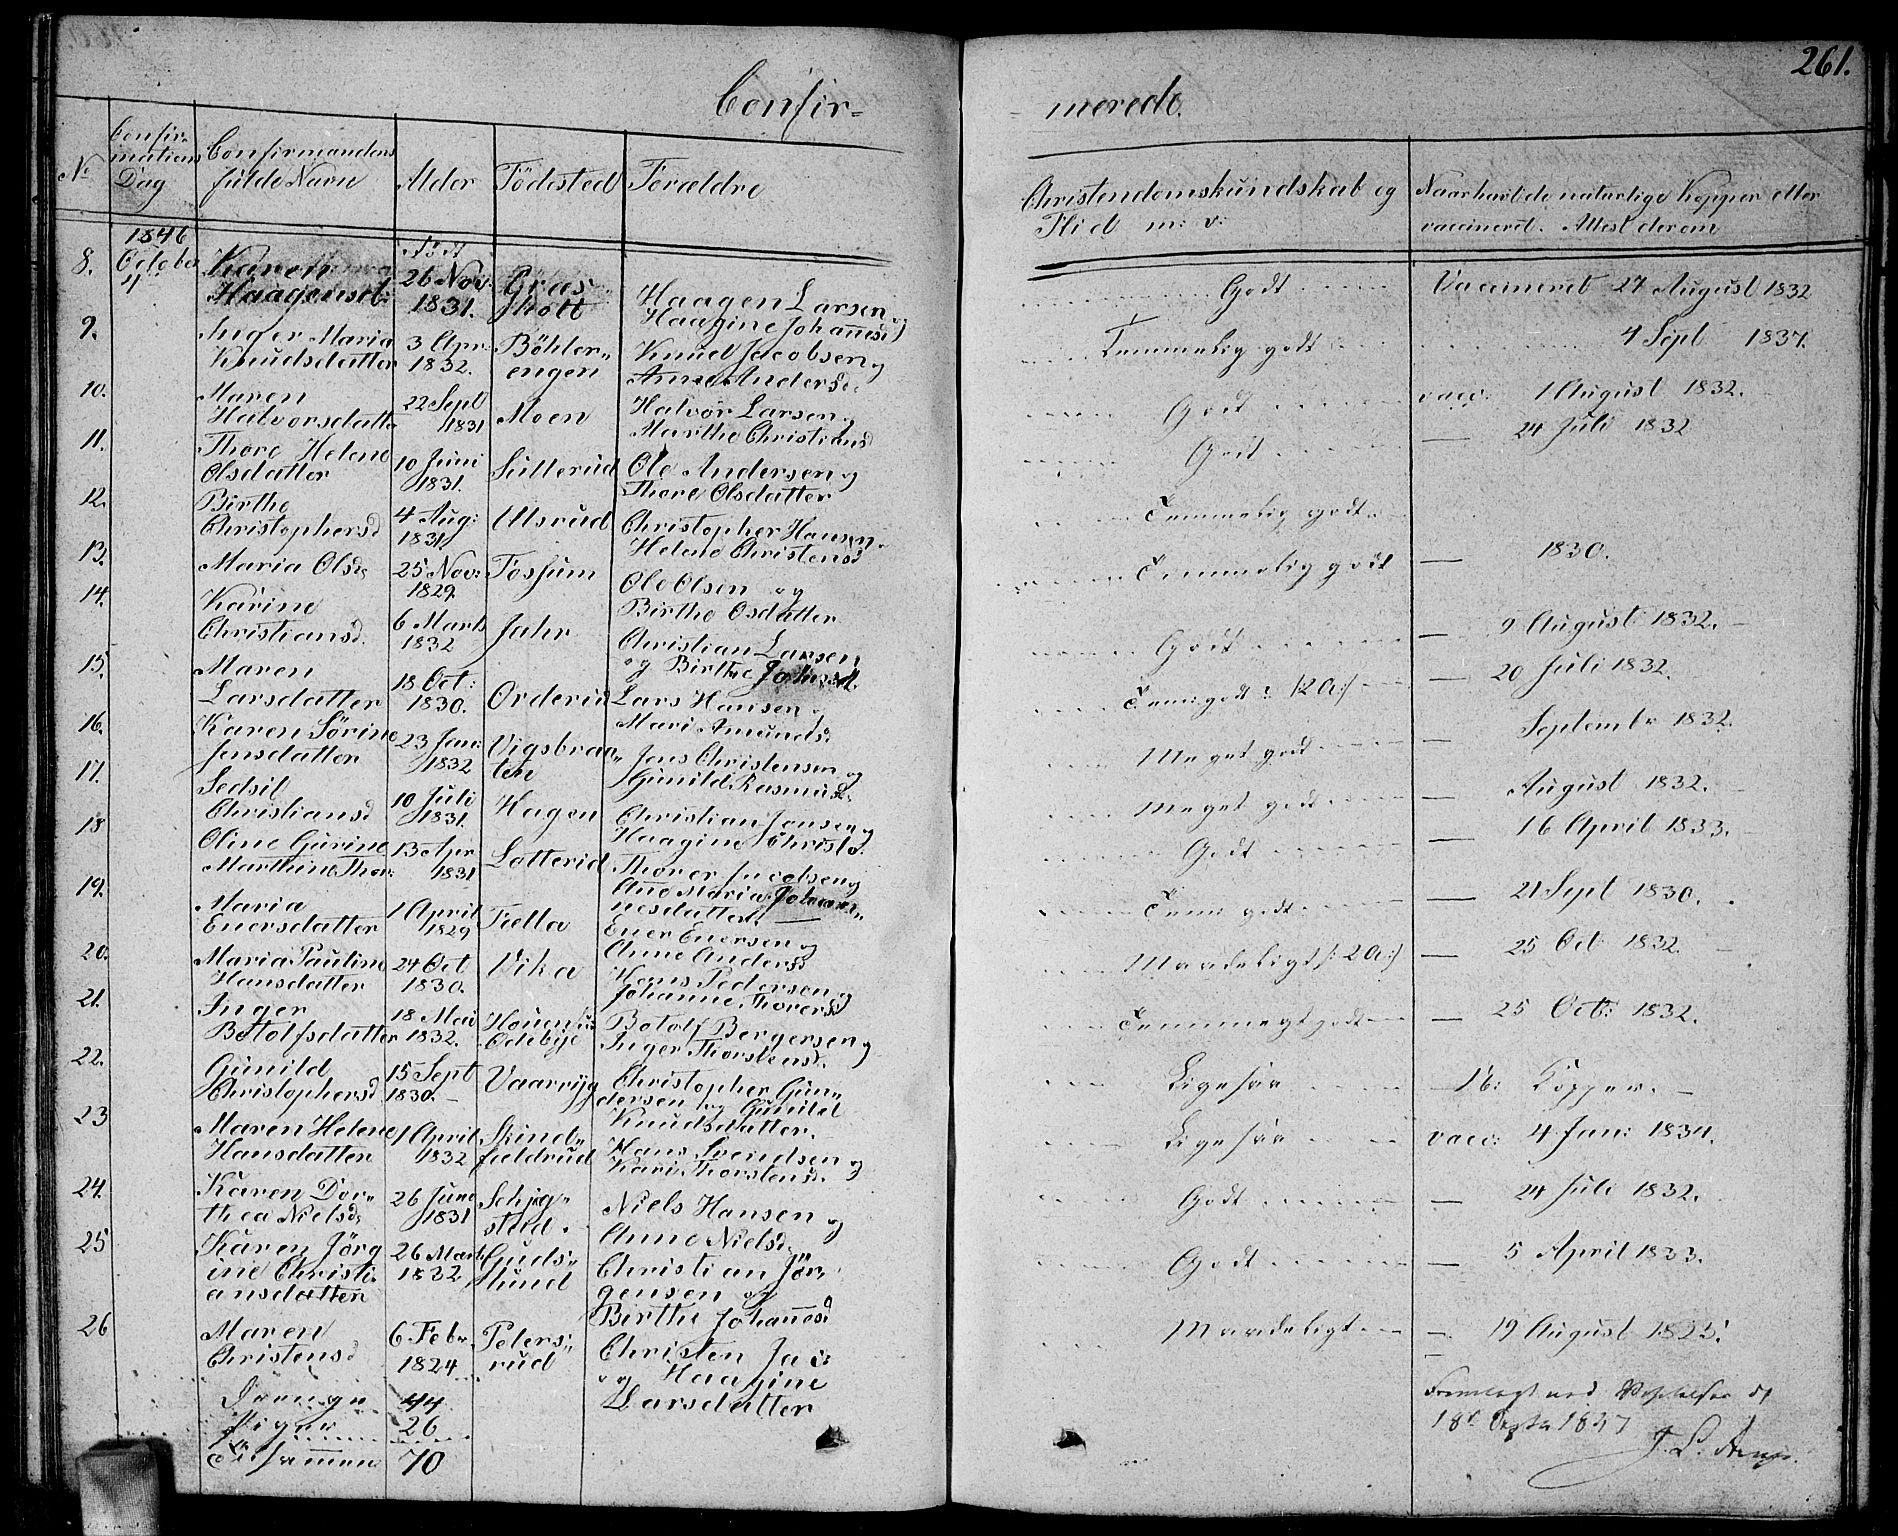 261.
Confir=
=merede.
No
Confir=
mations
Dag
Confirmandens
fulde Navn
Alder
Födested
Forældre
Christendomskundskab og
Flid m: v:
Naar havt de naturlige Kopper eller
vaccineret. Attest derom
1846
October
4
8.
Karen
Haagensd:
Föd
26 Nov:
1831.
Græs
Haagen Larsen og
Haagine Johannesd
Godt
Vaccineret 27 August 1832
9.
Inger Maria
Knudsdatter
3 Apr.
1832.
Böhler=
engen
Knud Jacobsen og
Anne Andersd.
Temmelig godt
4 Sept 1837.
10.
Maren
Halvorsdatter
22 Sept
1831
Moen
Halvor Larsen og
Marthe Christiansd
Godt
vacc: 1 August 1832.
11.
Thore Helene
Olsdatter
10 Juni
1831.
Sulterud
Ole Andersen og
Thore Olsdatter
Godt
24 Juli 1832
12.
Birthe
Christophersd
4 Aug:
1831.
Ulsrud
Christopher Hansen
Helene Christensd
Temmelig godt.
13.
Maria Olsd
25 Nov:
1829.
Fossum
Ole Olsen og
Birthe Osdatter
Temmelig godt
1830.
14.
Karine
Christiansd.
6 Marts
1832
Jahr
Christian Larsen
og Birthe Johnsd.
Godt
9 August 1832.
15.
Maren
Larsdatter
18 Oct:
1830.
Orderud
Lars Hansen og
Mari Amundsd.
Tem: godt
20 Juli 1832.
16.
Karen Sörine
Jensdatter
23 Jan:
1832
Vigsbraa=
ten
Jens Christensen og
Gunild Rasmusd.
Meget godt
Septembr 1832.
17.
Sedsil
Christiansd
10 Juli
1831.
Hagen
Christian Jensen og
Haagine Christ d.
Meget godt
August 1832.
18
Oline Gurine
Marthine Thor:
13 Apr
1831
Lotterud
Thorer Jacobsen og
Ane Maria Johan=
nesdatter.
Godt
16 April 1833.
19.
Maria
Enersdatter
1 April
1829
Fiella
Ener Enersen og
Anne Andersd
Tem: godt
21 Sept 1830.
20.
Maria Pauline
Hansdatter
24 Oct
1830.
Vika
Hans Pedersen og
Johanne Thorersd
Maadeligt (: 2 A:)
25 Oct 1832.
21.
Inger
Botolfsdatter
18 Mai
1832.
Botolf Bergersen og
Inger Thorstensd.
25 Oct: 1832.
22.
Gunild
Christophersd
15 Sept
1830.
Vaarryg
Christopher Gun=
dersen og Gunild
Knudsdatter.
Ligesaa
Kopper.
23
Maren Helene
Hansdatter
1 April
1832
Skind=
fieldrud
Hans Svendsen og
Kari Thorstensd.
Ligesaa
vacc: 4 Jan: 1834.
24.
Karen Dor=
thea Nielsd
26 Juni
1831
Niels Hansen og
Anne Nielsd
Godt
24 Juli 1832.
25
Karen Jörg
ine Christi
ansdatter
26 Mart
1832
Guds=
lund
Christian Jör
gensen og
Birthe Johannesd
Godt
5 April 1833.
26
Maren
Christensd
6 Febr.
1824.
Peters=
rud
Christen Jac
og Haagine
Larsdatter
Maadeligt
19 August 1825.
Drenge 44
Piger 26
Tilsammen 70
Fremlagt ved
18d Septr 1847